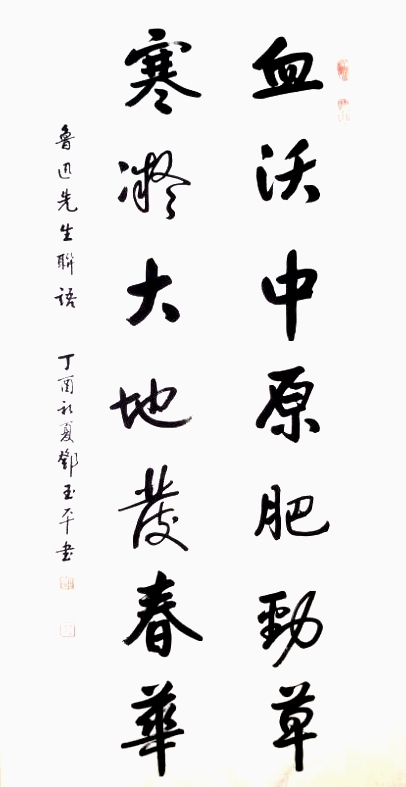 血沃中原肥劲草
寒凝大地發春華
魯迅先生聯語 丁酉初夏鄧玉平书